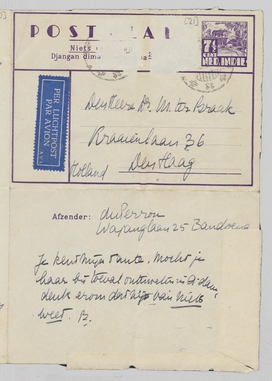 [21]
POST
Niets
Djangan dima
7½ CENT
NED. INDIE
PER LUCHTPOST
PAR AVION
Den Heere Dr. M. ter Braak
Braamlaan 36
Den Haag
Holland
Afzender: duPerron
Wajanglaan 25 Bandoeng
Je kent mijn tante. Mocht je
haar bij toeval ontmoeten in
denk erom dat zij van niets
weet.